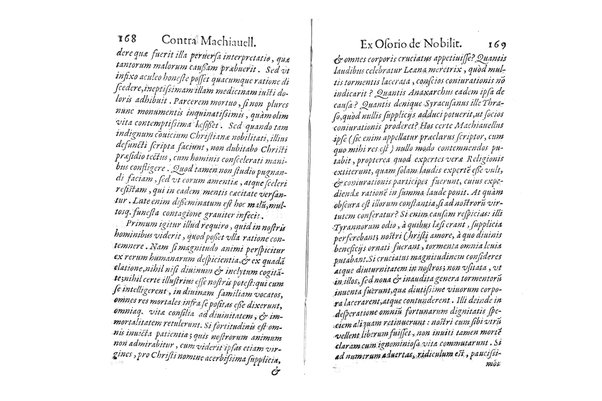 168 Contra Machiauell.
dere quæ fuerit illa peruersa interpretatio, quæ
tantorum malorum causam præbuerit. Sed vt
infixo aculeo honeste posset quacumque ratione di
scedere, ineptissimam illam medicinam iusti do
loris adhibuit. Parcerem mortuo, si non plures
nunc monumentis inquinatissimis, quàm olim
vita contemptissima læsisset. Sed quando tam
indignum conuicium Christianæ nobilitati, illius
defuncti scripta faciunt, non dubitabo Christi
præsidio tectus, cum hominis conscelerati mani
bus confligere. Quod tamen non studio pugnan
di faciam, sed vt eorum amentiæ, atque sceleri
resistam, qui in eadem mentis cæcitate versan-
tur. Late enim disseminatum est hoc malū, mul-
tosq. funesta contagione grauiter infecit.
Primum igitur illud requiro, quid in nostris
hominibus viderit, quod posset vlla ratione con-
temnere. Nam si magnitudo animi perspicitur
ex rerum humanarum despicientia, & ex quadā
elatione, nihil nisi diuinum & inclytum cogitā-
te, nihil certe illustrius esse nostris potest: qui cum
se intelligerent, in diuinam familiam vocatos,
omnes res mortales infra se positas esse dixerunt,
omniaq. vitæ consilia ad diuinitatem, & im-
mortalitatem retulerunt. Si fortitudinis est om-
nis inuicta patientia; quis nostrorum animum
non admirabitur, cum viderit ipsas etiam vir-
gines, pro Christi nomine acerbissima supplicia,
&
Ex Osorio de Nobilit. 169
& omnes corporis cruciatus appetiuisse? Quantis
laudibus celebratur Leana meretrix, quòd mul
tis tormentis lacerata, conscios coniurationis nō
indicarit? Quantis Anaxarchus eadem ipsa de
causa? Quantis denique Syracusanus ille Thra-
so, quòd nullis supplicijs adduci potuerit, vt socios
coniurationis proderet? Hos certe Machiauellus
ipse (sic enim appellari eum accepimus, cum præter
quo mihi res est) nullo modo contemnendos pu-
tabit, propterea quod expertes veræ Religionis
extiterunt, quam solam laudis expertē esse vult,
& coniurationis participes fuerunt, cuius expe-
diendæ rationē in summa laude posuit. At quàm
obscura est illorum constantia, si ad nostrorū vir-
tutem conferatur? Si enim causam respicias: illi
Tyrannorum odio, à quibus læsi erant, supplicia
perferebant; nostri Christi amore, à quo diuinis
beneficijs ornati fuerant, tormenta omnia leuia
putabant. Si cruciatus magnitudinem consideres
atque diuturnitatem in nostros; non vsitata, vt
in illos, sed noua & inaudita genera tormentorū
inuenta fuerunt, quæ diutissime viuorum corpo
ra lacerarent, atque contunderent. Illi deinde in
desperatione omnium fortunarum dignitatis spe-
ciem aliquam retinuerunt: nostri cum sibi virā
vellent liberum fuisset, non inuiti tamen mortē
cum ignominiosa vita commutarunt. Si
ad numerum aduertas, ridiculum est, paucissi-
mos